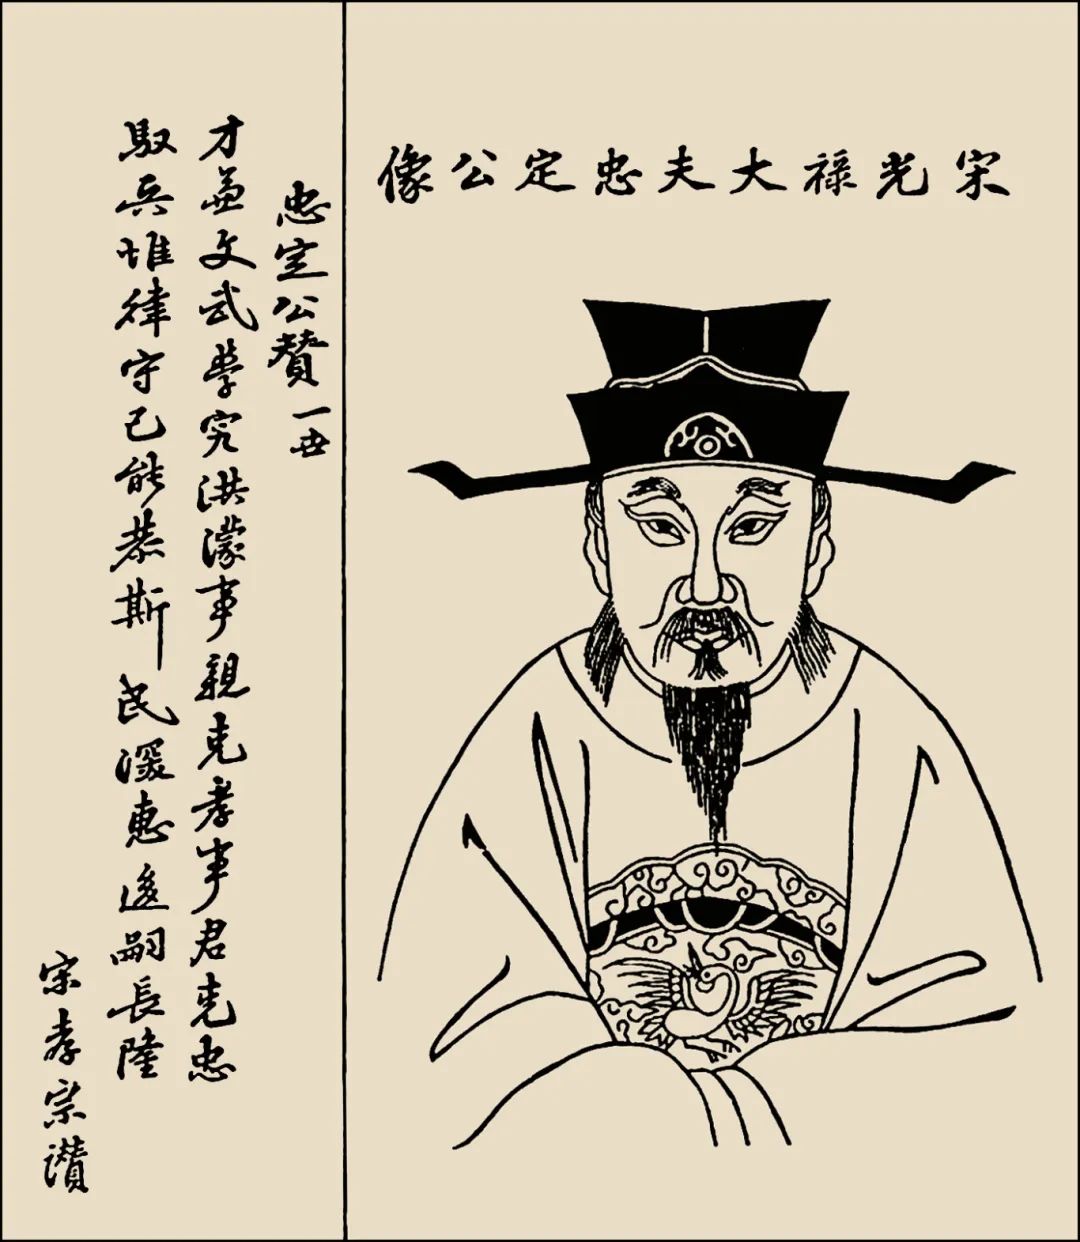 宋光禄大夫忠定公像
忠定公赞 一世
才兼文武学究洪濛事親克孝事君克忠
馭兵惟律守己能恭斯民深惠後嗣長隆
宋孝宗讃